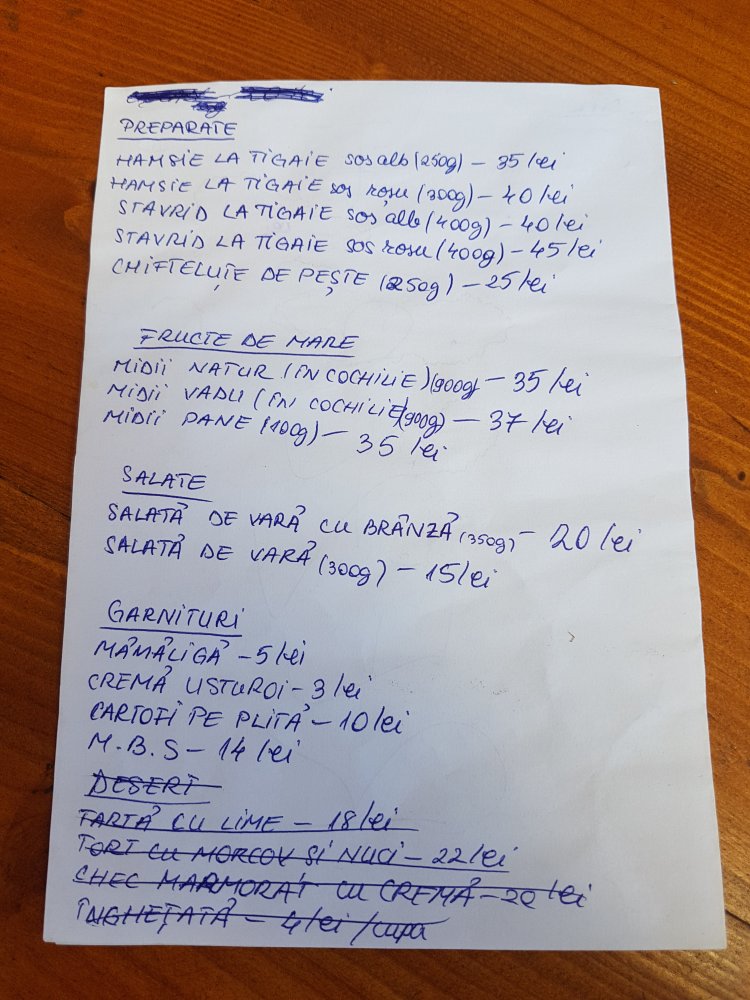 PREPARATE
HAMSIE LA TIGAIE sos alb (250g) – 35 lei
HAMSIE LA TIGAIE sos roșu (300g) – 40 lei
STAVRID LA TIGAIE sos alb (400g) – 40 lei
STAVRID LA TIGAIE sos roșu (400g) – 45 lei
CHIFTELUȚE DE PEȘTE (250g) – 25 lei
FRUCTE DE MARE
MIDII NATUR (ÎN COCHILIE) (900g) – 35 lei
MIDII VADU (ÎN COCHILIE) (900g) – 37 lei
MIDII PANE (100g) – 35 lei
SALATE
SALATĂ DE VARĂ CU BRÂNZĂ (350g) – 20 lei
SALATĂ DE VARĂ (300g) – 15 lei
GARNITURI
MĂMĂLIGĂ – 5 lei
CREMĂ USTUROI – 3 lei
CARTOFI PE PLITĂ – 10 lei
M.B.S – 14 lei
DESERT
TARTĂ CU LIME – 18 lei
TORT CU MORCOV ȘI NUCI – 22 lei
CHEC MARMORAT CU CREMĂ – 20 lei
ÎNGHEȚATĂ – 4 lei / cupa